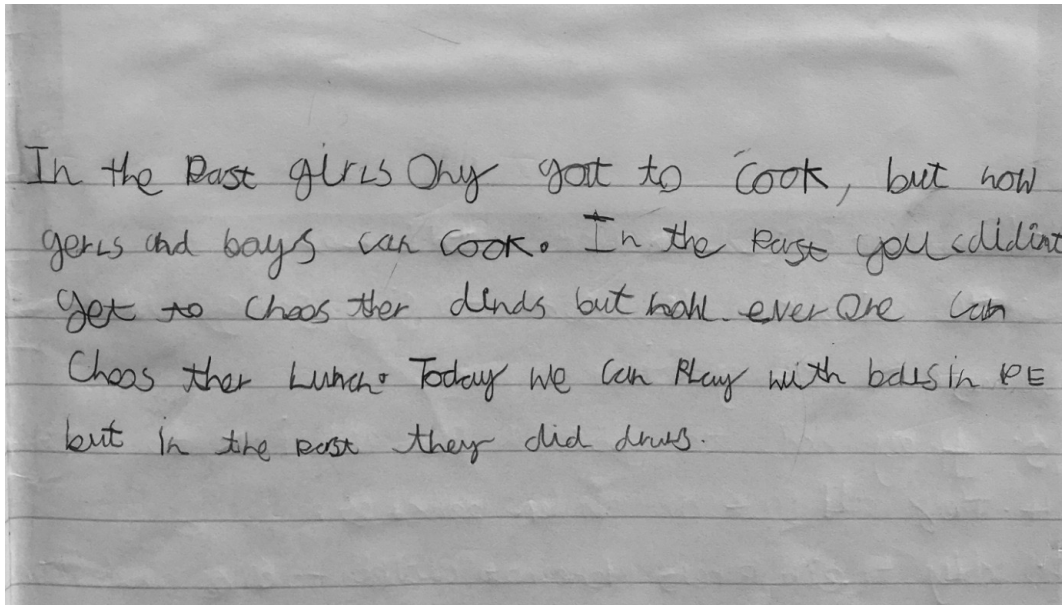 In the Past girls Ony gott to Cook, but now
gerls and boys can Cook. In the Past you didint
get to Choos ther dinds but ever One Can
Choos ther Lunch. Today we Can Play with balls in PE
but in the past they did